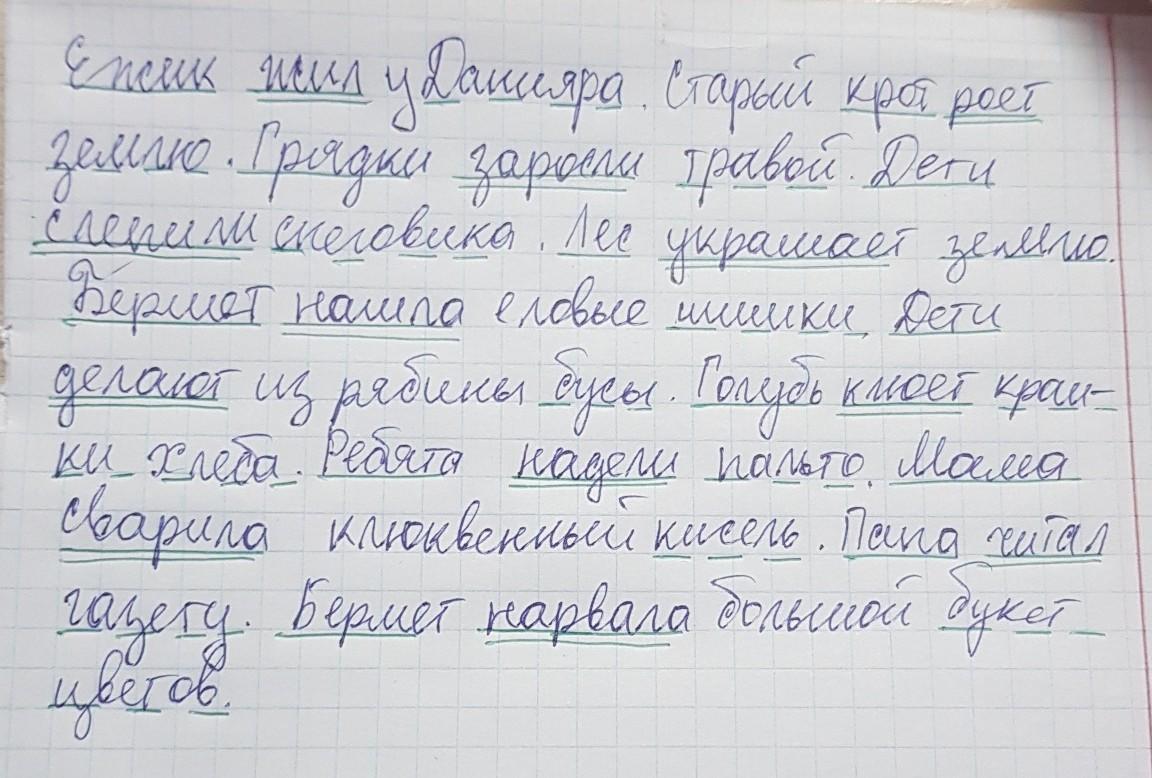 Ёжик жил у Данияра. Старый крот роет
землю. Грядки заросли травой. Дети
слепили снеговика. Лес украшает землю.
Бермет нашла еловые шишки. Дети
делают из рябины бусы. Голубь клюёт крош-
ки хлеба. Ребята надели пальто. Мама
сварила клюквенный кисель. Папа читал
газету. Бермет нарвала большой букет
цветов.